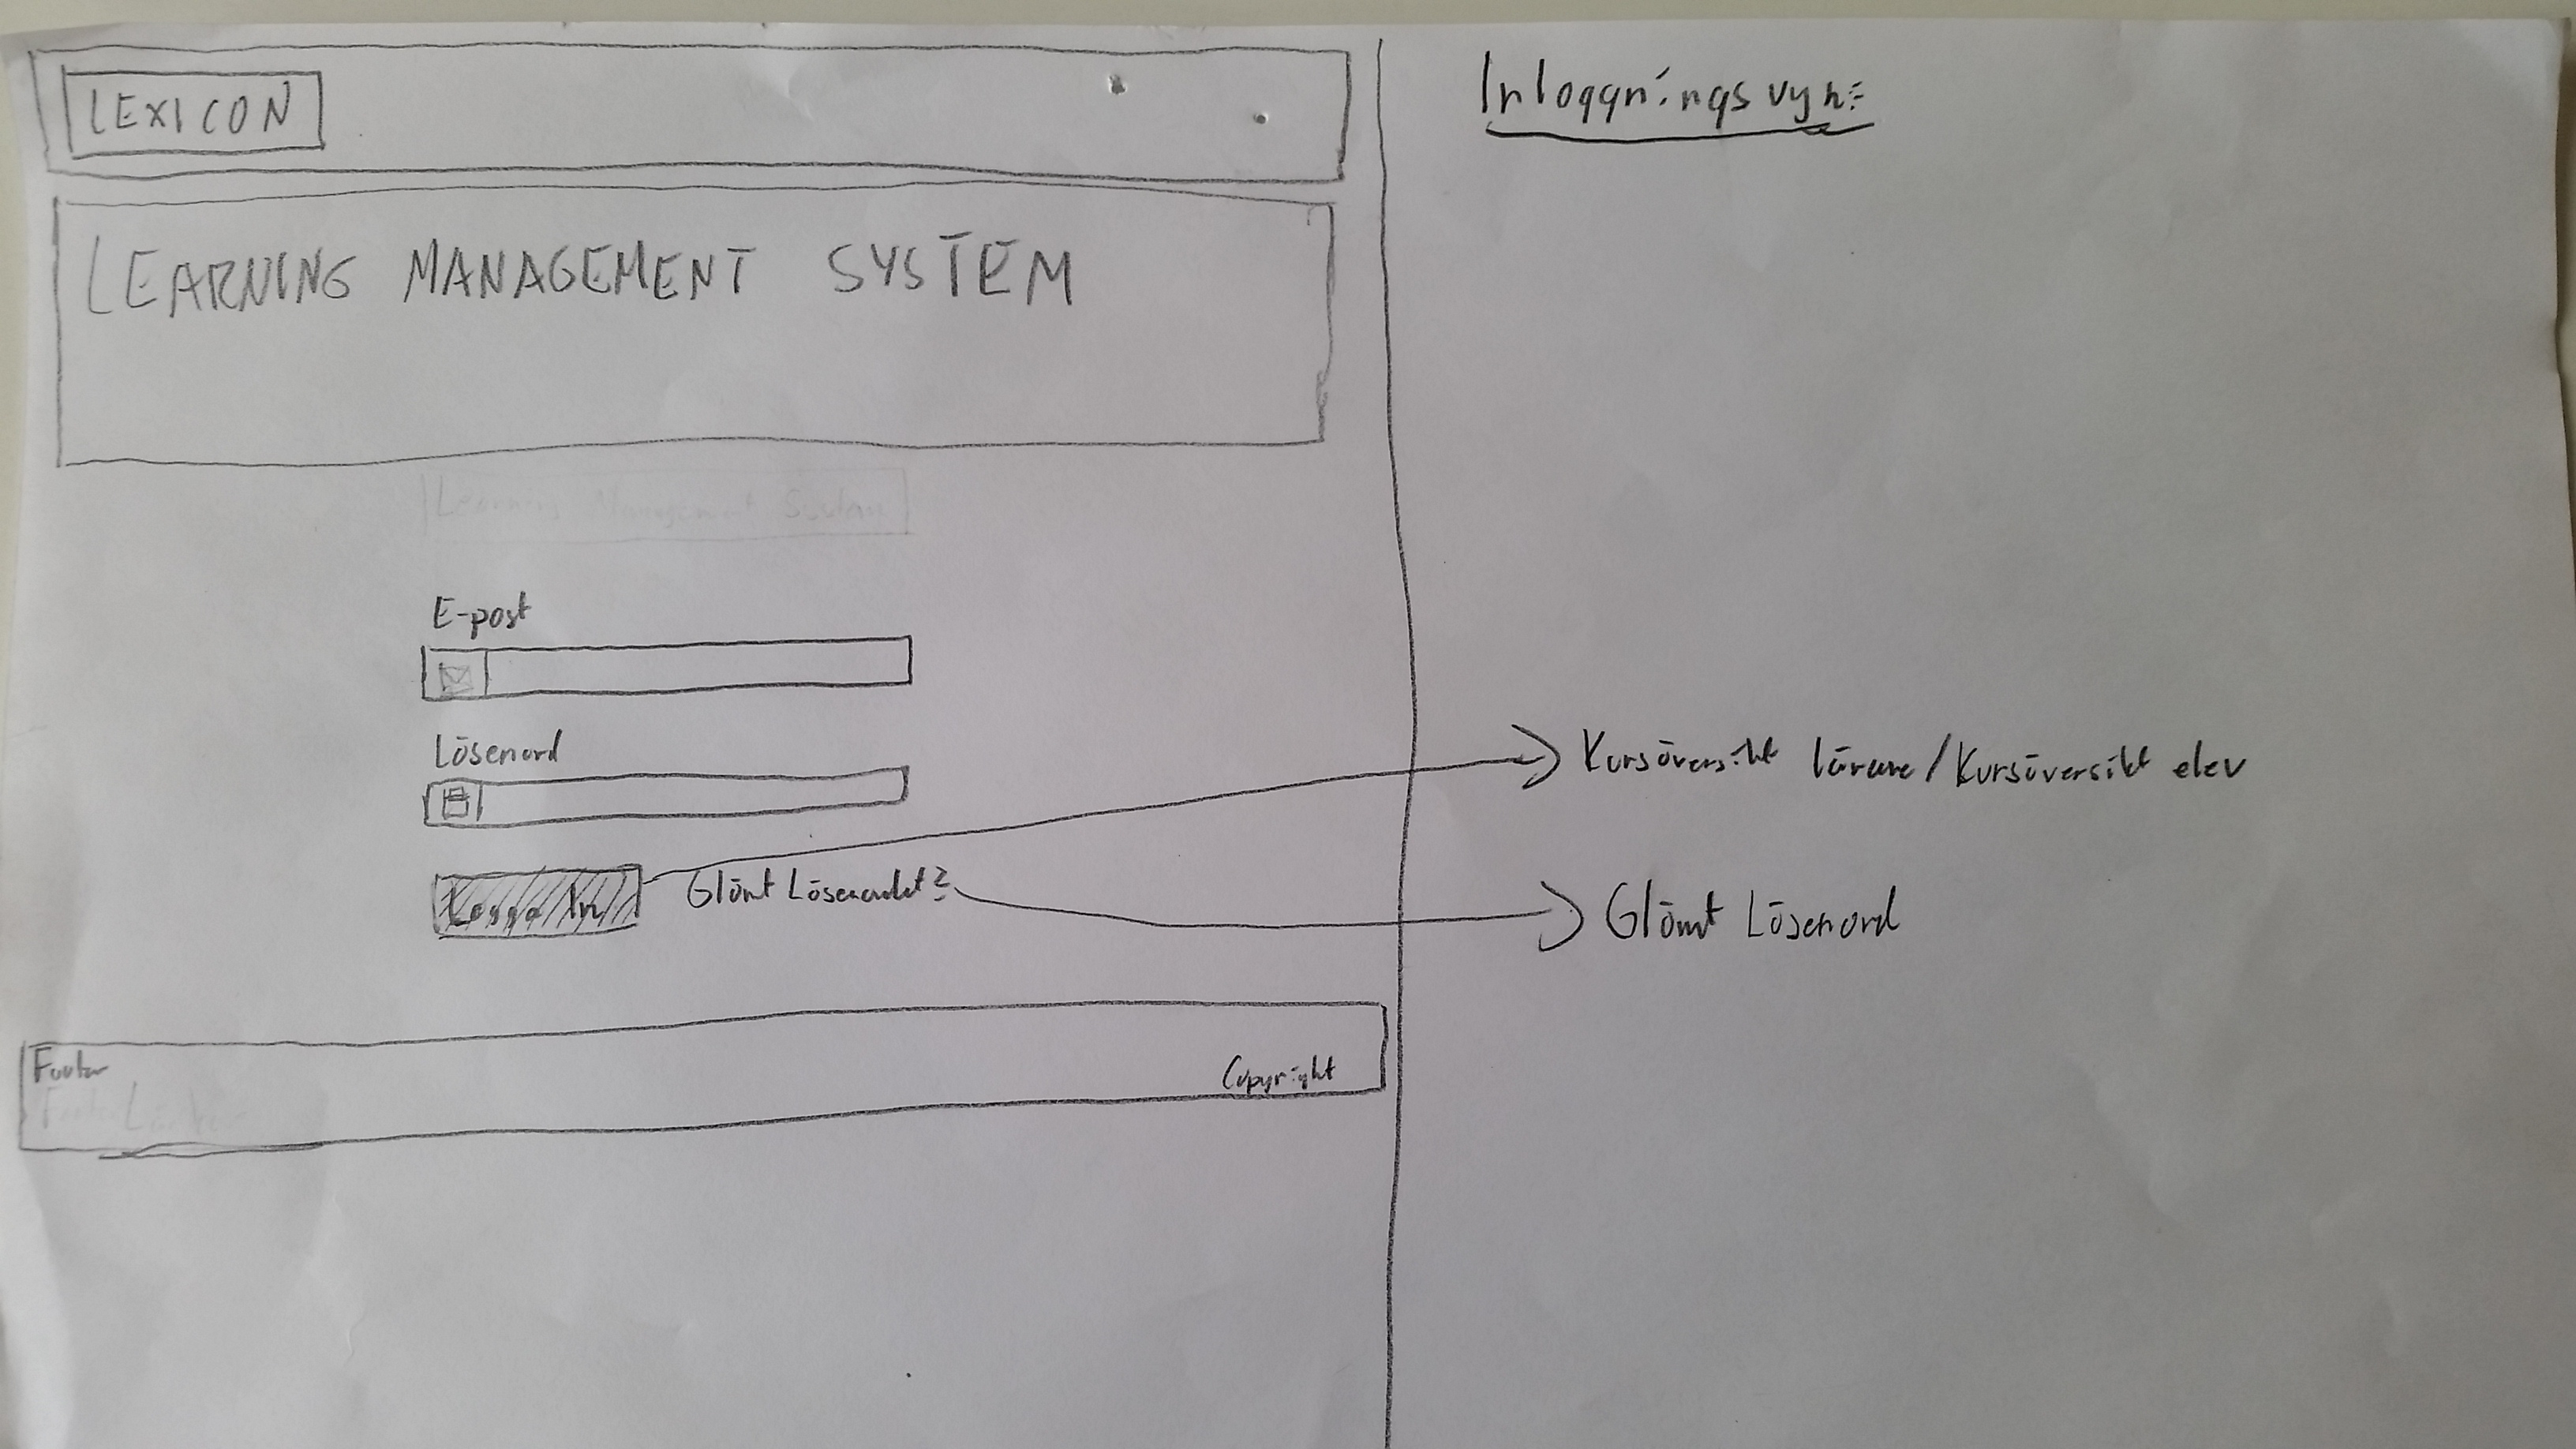 LEXICON
LEARNING MANAGEMENT SYSTEM
Learning Management System
E-post
Lösenord
Logga In
Glömt Lösenordet?
Footer
Copyright
Inloggningsvyn:
Kursöversikt lärare/Kursöversikt elev
Glömt Lösenord